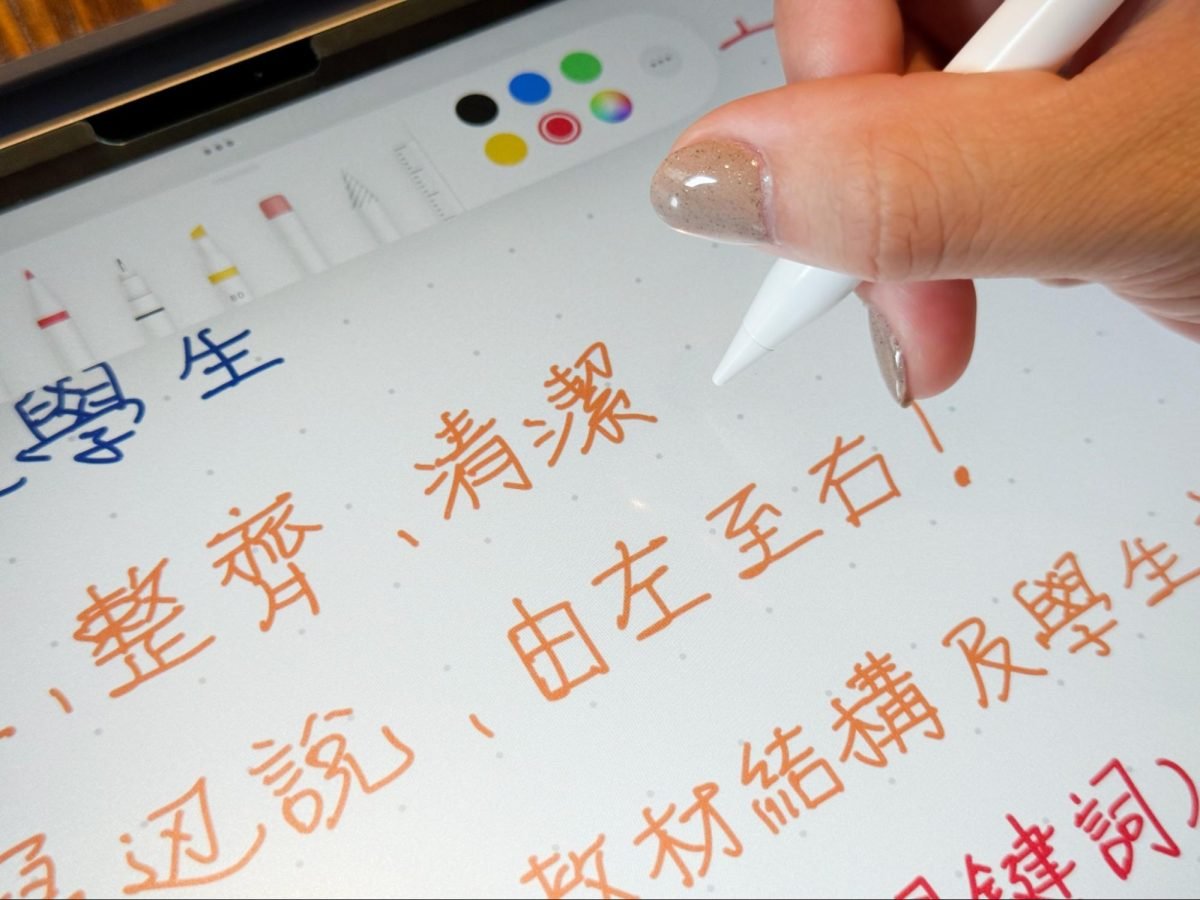 80
學生
、整齊、清潔
辺說、由左至右！
教材結構及學生
鍵詞）